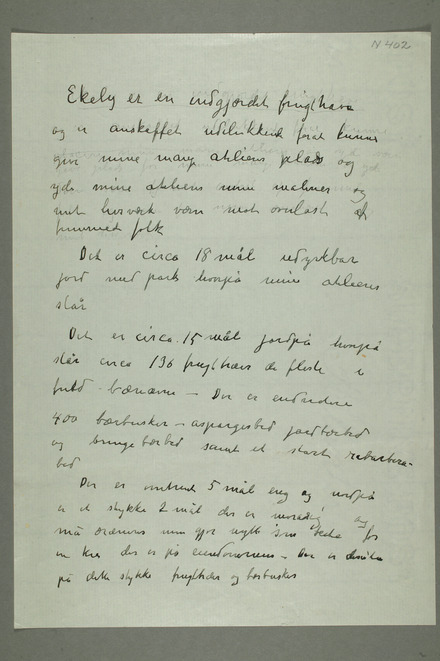 N 402
Ekely er en indgjærdet frugthave
og er anskaffet udelukkende forat kunne
give mine mange atelierer plads og
yde mine atelierer mine malerier og
mit livsværk værn mod overlast af
fremmed folk
Det er circa 18 mål udyrkbar
jord med park hvorpå mine atelierer
står
Det er circa 15 mål jord på hvorpå
står circa 136 frugttrær de fleste i
fuld bæreævne – Der er endvidere
400 bærbusker – aspargesbed jordbærbed
og bringebærbed samt et stort rabarbra-
bed
Der er omtrent 5 mål eng og
er et stykke 2 mål der er
må som gjør nytte som for
en ku der er på eiendommen – Der er desuden
på dette stykke frugttrær og bærbusker